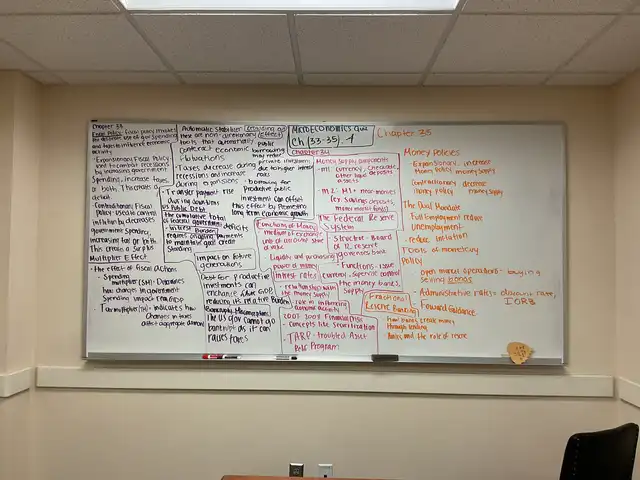 Chapter 33
Fiscal Policy: fiscal policy involves
the deliberate use of gov spending
and taxes to influence economic
activity
- Expantionary Fiscal Policy
used to combat recessions
by increasing government
Spending,
or both. This creates a
deficit
- Contractionary Fiscal
Policy: used to control
inflation by decreases
government spending,
increasing tax or both
This create a Surplus
Multiplier Effect
- the effect of fiscal actions
- Spending
multiplier (SM): Determines
how changes in government
Spending impact real GDP
- Tax multiplier (TM) = indicates how
Changes in taxes
affect aggregate demand
Automatic Stabilizer
these are non-discretionary
tools that automatically
contract economic
fluctuations
- Taxes decrease during
recessions and increase
during expansions
- Transfer payment rise
during downturns
US Public Debt
the cumulative total
of federal government deficits
- interest burden
requires ongoing payments
to maintain good credit
Standing
Impact on future
generations
Debt for productive
investments can
enchance
reducing its relative Burden
Bankruptcy Misconceptions
The US gov cannot go
bankrupt as it can
raises taxes
Crowding out
Effect
Public
borrowing
may reduce
private investment
due to higher interest
rates
- borrowing for
Productive public
investment can offset
this effect by Promoting
long term economic growth
Macroeconomics Quiz
Ch (33-35). 4
Chapter 34
Functions of Money
medium of exchange
unit of account store
of value
Liquidity and purchasing
power of money
interest rates
- relationship with
the money supply
- role in influencing
economic activity
2007-2008 Financial Crisis
- Concepts like Securitization
- TARP - troubled Asset
Relief Program
Money Supply components
- M1: currency, checkable,
other liquid deposits
assets.
- M2: M1 + near-monies
(ex: Savings deposits,
money market funds)
The Federal Reserve
System
- Structure - Board
of 12 reserve
governess bank.
- Functions - issue
currency, supervise control
the money banks,
Supply
Fractional
Reserve Banking
- how banks create money
through lending
- banks and the role of reserve
Chapter 35
Money Policies
- Expantionary: increase
money policy money supply
- Contractionary decrease
money policy money supply
The Dual Mandate
- Full Employment reduce
unemployment
- reduce inflation
Tools of monetary
Policy
- open market operations = buying n
selling bonds
- Administrative rates = discount rate,
IORB
- Forward Guidance.